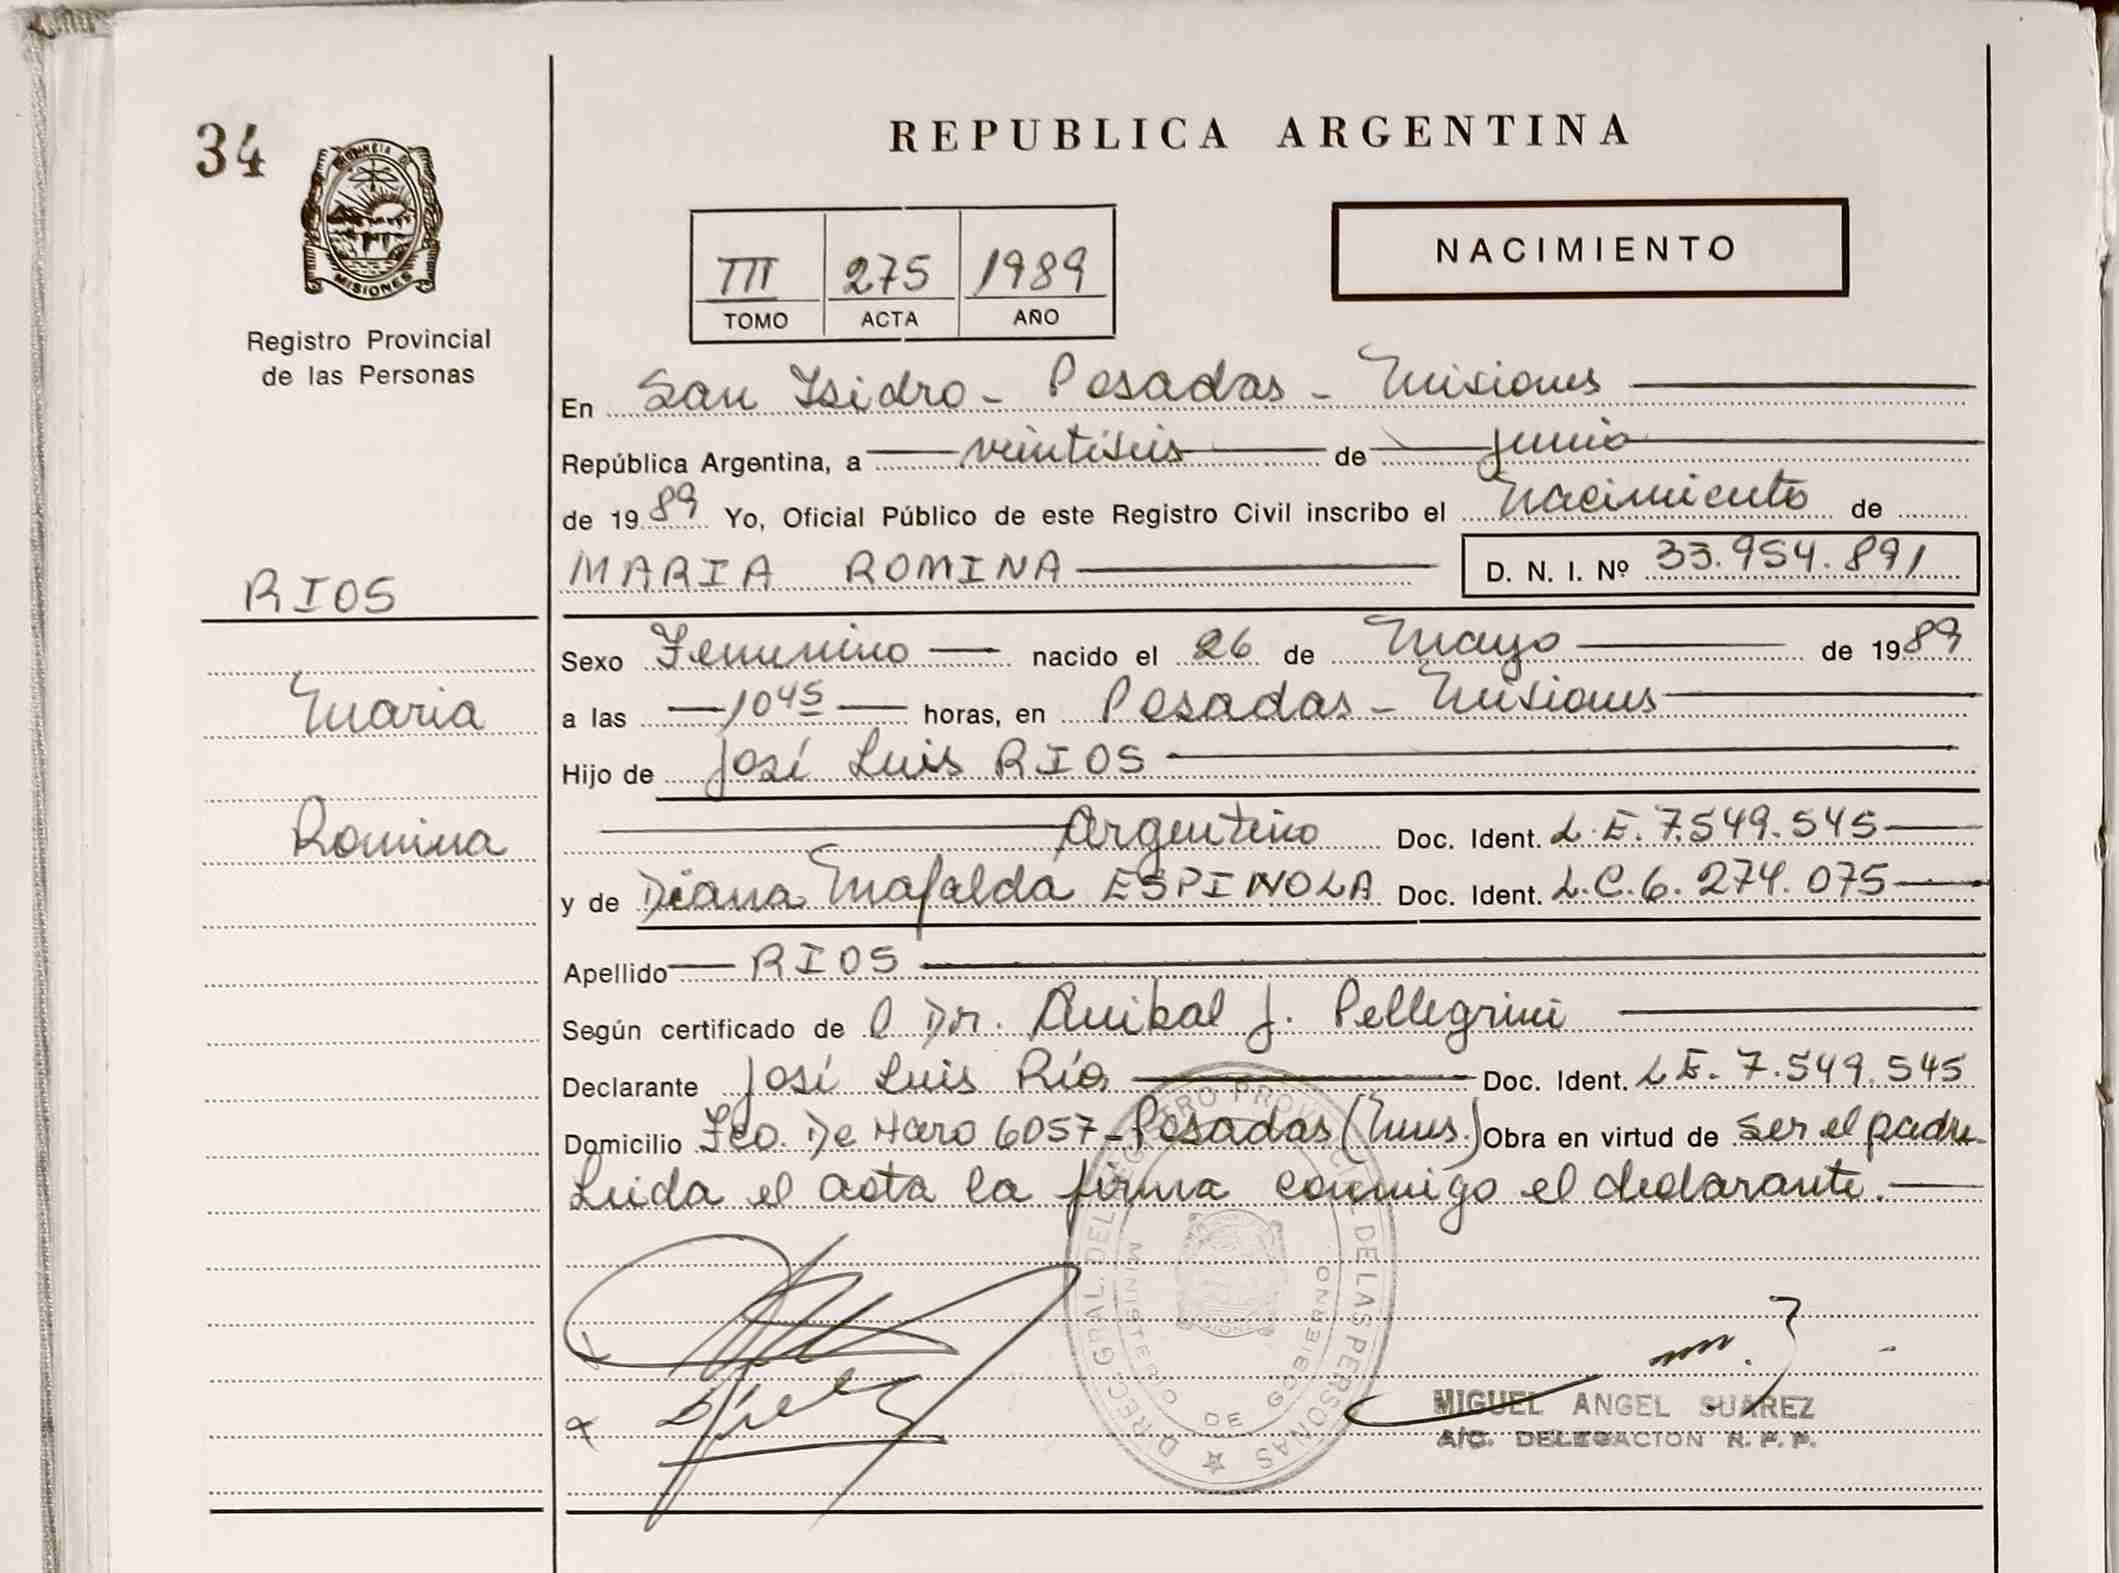 34
PROVINCIA DE
MISIONES
Registro Provincial
de las Personas
RIOS
Maria
Romina
REPUBLICA ARGENTINA
III 275 1989
TOMO ACTA AÑO
NACIMIENTO
En San Isidro - Posadas - Misiones
República Argentina, a veintiseis de junio
de 1989 Yo, Oficial Público de este Registro Civil inscribo el Nacimiento de
MARIA ROMINA D. N. I. Nº 33.954.891
Sexo Femenino nacido el 26 de Mayo de 1989
a las 10 45 horas, en Posadas - Misiones
Hijo de José Luis RIOS
Argentino Doc. Ident. L.E. 7.549.545
y de Diana Mafalda ESPINOLA Doc. Ident. L.C. 6.274.075
Apellido RIOS
Según certificado de l Dr. Anibal J. Pellegrini
Declarante José Luis Ríos Doc. Ident. L.E. 7.549.545
Domicilio Fco. De Haro 6057 - Posadas (Mnes.) Obra en virtud de ser el padre
Leida el acta la firma conmigo el declarante.
DIREC. GRAL. DEL REGISTRO PROVINCIAL DE LAS PERSONAS
MINISTERIO DE GOBIERNO
MIGUEL ANGEL SUAREZ
A/C. DELEGACION R. P. P.